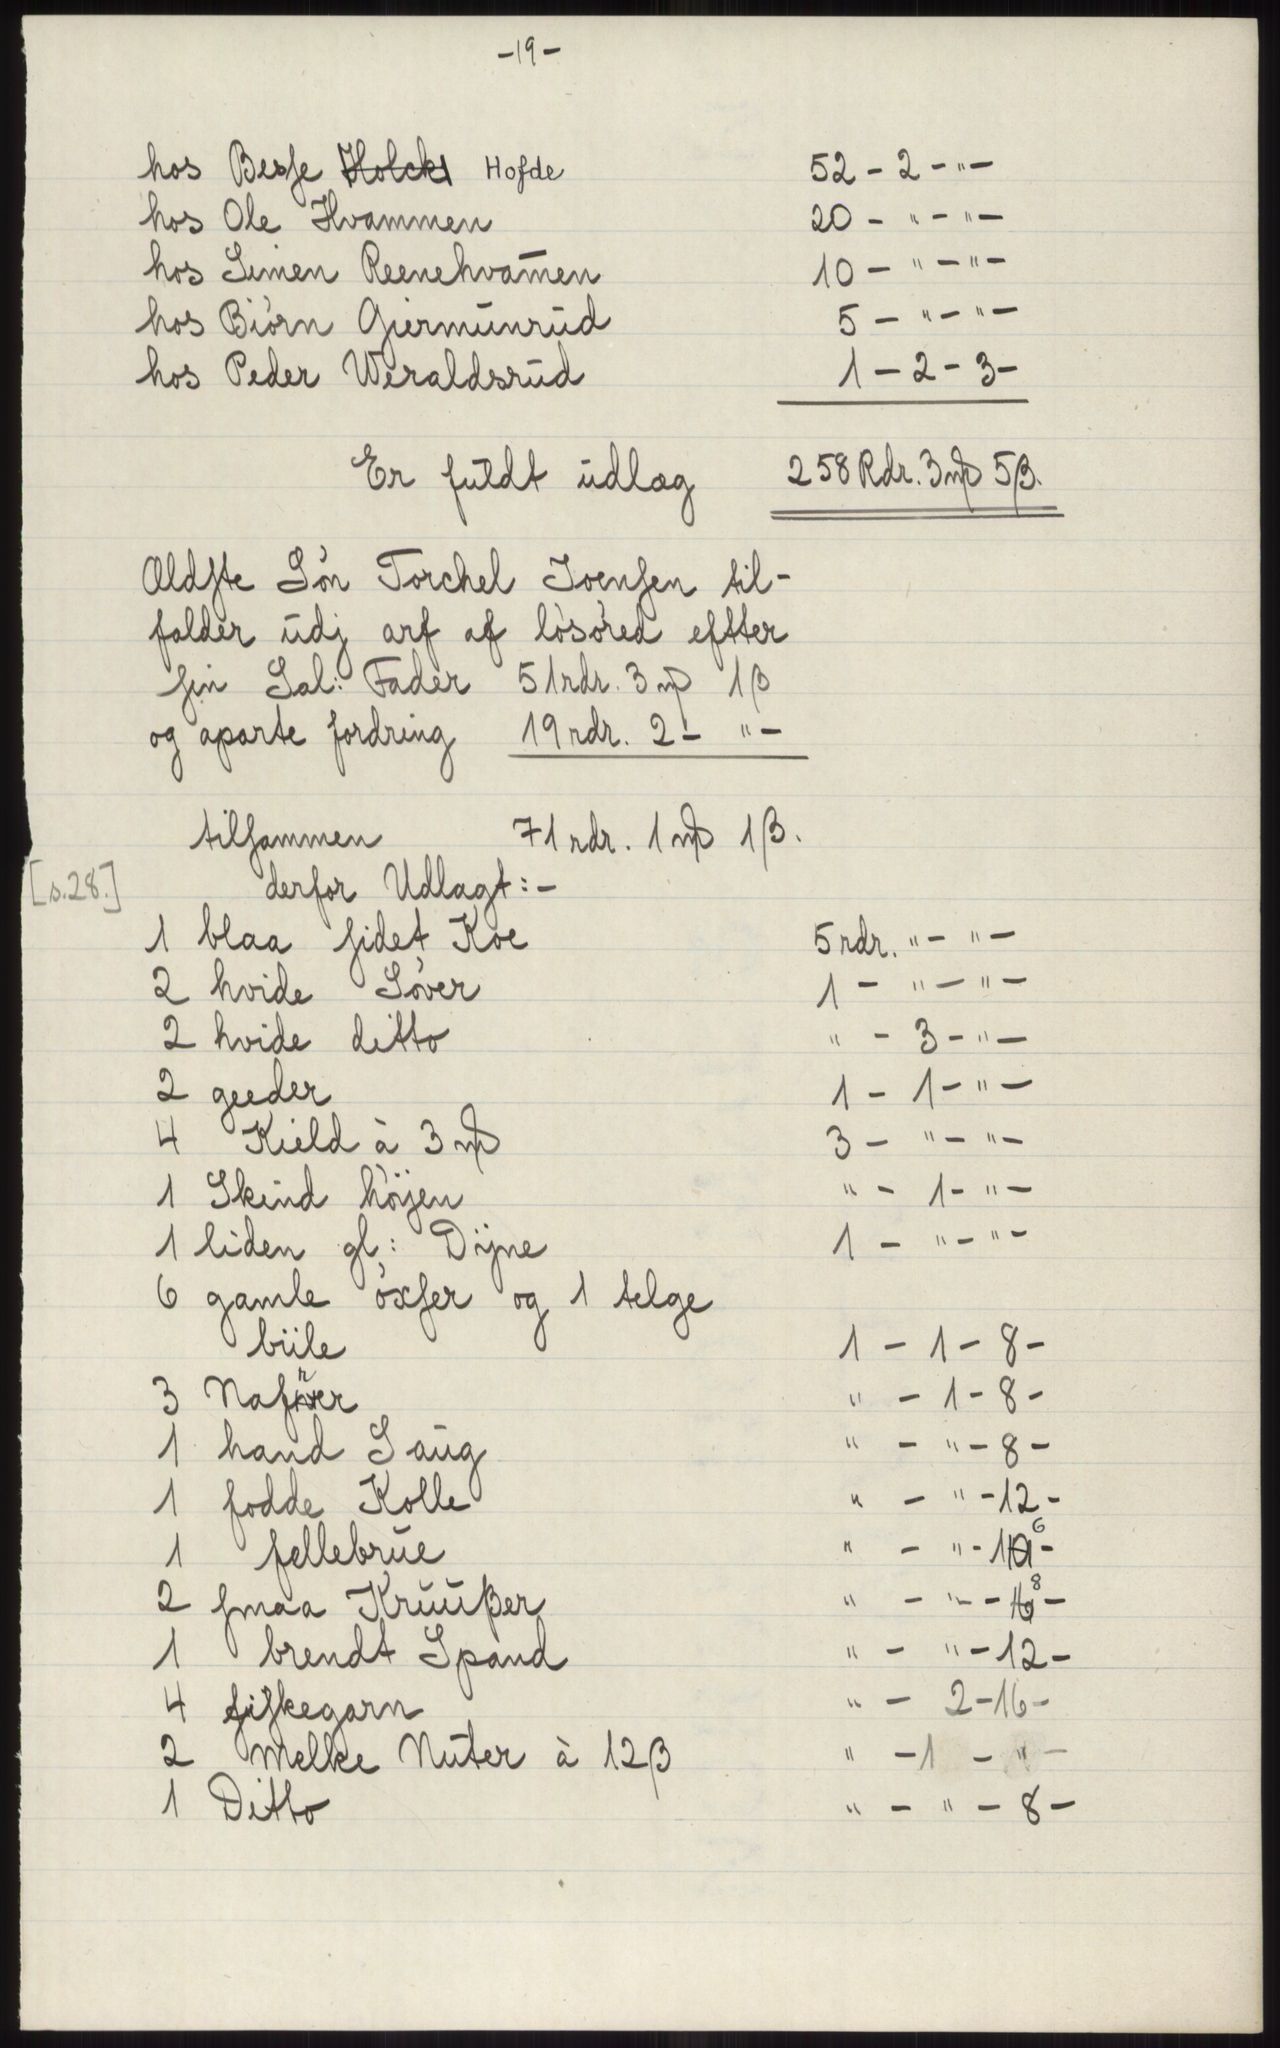 -19-
hos Besse Holck Hofde 52 - 2 - " -
hos Ole Hvammen 20 - " - " -
hos Simen Reenehvam̄en 10 - " - " -
hos Biörn Giermünrüd 5 - " - " -
hos Peder Weraldsrüd 1 - 2 - 3 -
Er füldt üdlag 258 Rdr. 3 mβ 5 β.
Ældste Sön Torchel Joensen til-
falder üdj arf af lösöred eftter
sin Sal: Fader 51 rdr. 3 mβ 1 β
og aparte fordring 19 rdr. 2 - " -
tilsammen 71 rdr. 1 mβ 1 β.
[s.28.] derfor Udlagt: -
1 blaa sidet Koe 5 rdr. " - " -
2 hvide Söver 1 - " - " -
2 hvide ditto " - 3 - " -
2 geeder 1 - 1 - " -
4 Kield à 3 mβ 3 - " - " -
1 Skind höyen " - 1 - " -
1 liden gl: Dÿne 1 - " - " -
6 gamle öxser og 1 telge
biile 1 - 1 - 8 -
3 Nafrer " - 1 - 8 -
1 hand Saüg " - " - 8 -
1 fodde Kolle " - " - 12 -
1 fellebrüe " - " - 16 -
2 smaa Krüüßer " - " - 8 -
1 brendt Spand " - " - 12 -
4 fiskegarn " - 2 - 16 -
2 Melke Nüter à 12 β " - 1 - " -
1 Ditto " - " - 8 -